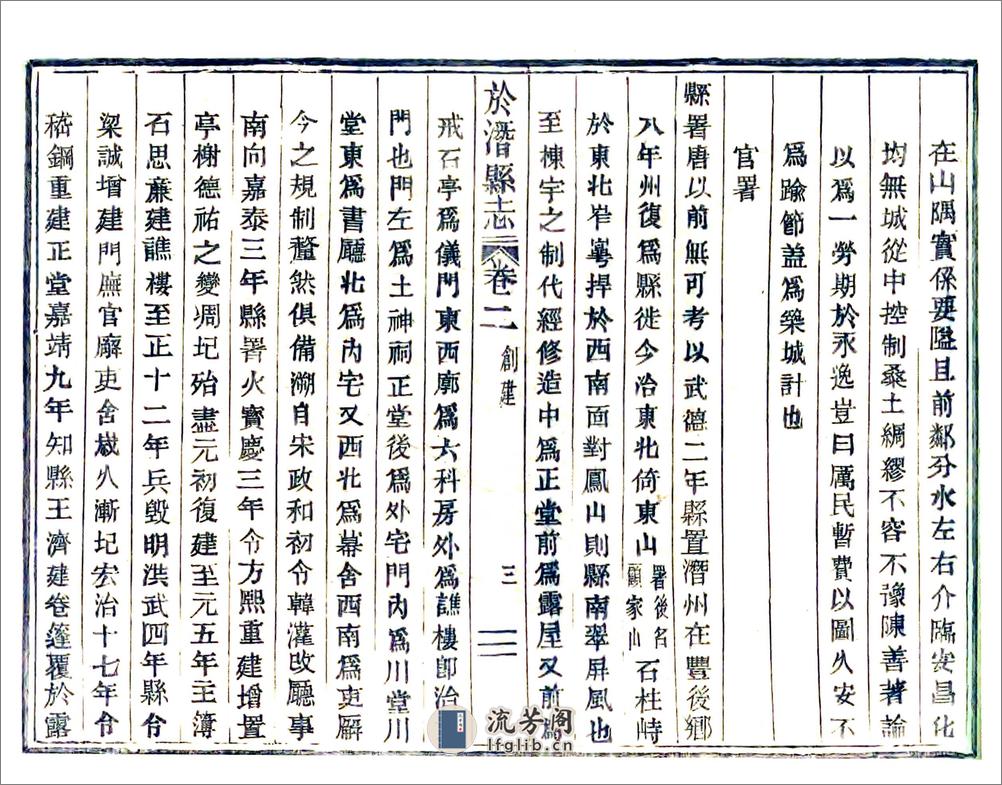 在山隅實係要隘且前鄰分水左右介臨安昌化
均無城從中控制桑土綢繆不容不豫陳善著論
以爲一勞期於永逸豈曰厲民暫費以圖久安不
爲踰節蓋爲築城計也
官署
縣署唐以前無可考以武德二年縣置潛州在豐後鄉
八年州復爲縣徙今冶東北倚東山署後名顧家山石柱峙
於東北岸崿捍於西南面對鳳山則縣南翠屏風也
至棟宇之制代經修造中爲正堂前爲露屋又前爲
於潛縣志
卷二
創建
三
戒石亭爲儀門東西廓爲六科房外爲譙樓卽治
門也門左爲土神祠正堂後爲外宅門內爲川堂川
堂東爲書廳北爲內宅又西北爲幕舍西南爲吏廨
今之規制釐然俱備溯自宋政和初令韓灌改廳事
南向嘉泰三年縣署火寳慶三年令方熙重建增置
亭榭德祐之變凋圮殆盡元初復建至元五年主簿
石思亷建譙樓至正十二年兵毀明洪武四年縣令
梁誠增建門廡官廨吏舍嵗久漸圮宏治十七年令
嵇鋼重建正堂嘉靖九年知縣王濟建卷篷覆於露
流芳阁
lfglib.cn